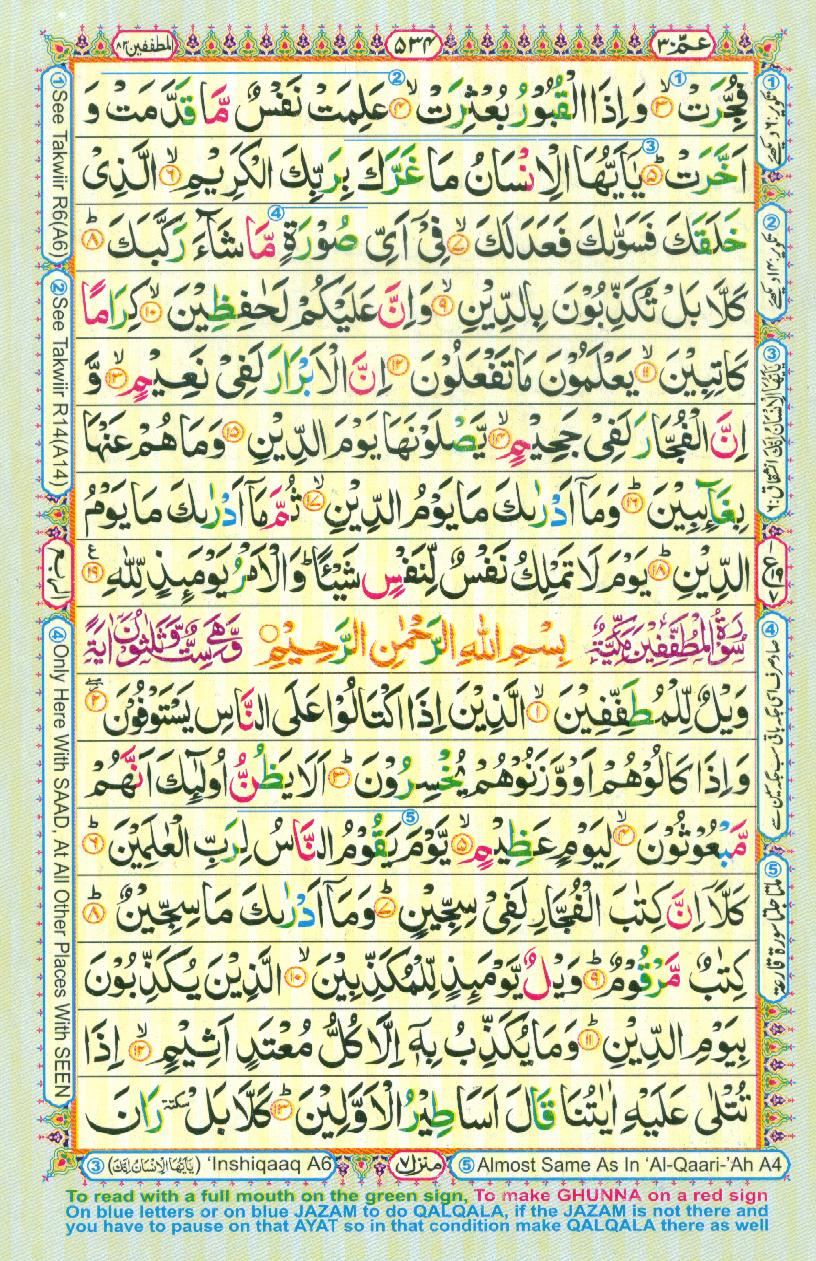 المطففين ٨٣
٥٣٤
عمّ ٣٠
فُجِّرَتْ ۙ‏﴿۳﴾ وَاِذَا الْقُبُوْرُ بُعْثِرَتْ ۙ‏﴿۴﴾ عَلِمَتْ نَفْسٌ مَّا قَدَّمَتْ وَ
اَخَّرَتْ ؕ‏﴿۵﴾ يٰۤاَيُّهَا الْاِنْسَانُ مَا غَرَّكَ بِرَبِّكَ الْكَرِيْمِ ۙ‏﴿۶﴾ الَّذِىْ
خَلَقَكَ فَسَوّٰٮكَ فَعَدَلَكَ ۙ‏﴿۷﴾ فِىْۤ اَىِّ صُوْرَةٍ مَّا شَآءَ رَكَّبَكَ ؕ‏﴿۸﴾
كَلَّا بَلْ تُكَذِّبُوْنَ بِالدِّيْنِ ۙ‏﴿۹﴾ وَاِنَّ عَلَيْكُمْ لَحٰـفِظِيْنَ ۙ‏﴿۱۰﴾ كِرَامًا
كَاتِبِيْنَ ۙ‏﴿۱۱﴾ يَعْلَمُوْنَ مَا تَفْعَلُوْنَ‏﴿۱۲﴾ اِنَّ الْاَبْرَارَ لَفِىْ نَعِيْمٍ ۙ‏﴿۱۳﴾ وَّ
اِنَّ الْفُجَّارَ لَفِىْ جَحِيْمٍ ۙ‏﴿۱۴﴾ يَّصْلَوْنَهَا يَوْمَ الدِّيْنِ‏﴿۱۵﴾ وَمَا هُمْ عَنْهَا
بِغَآئِبِيْنَ ؕ‏﴿۱۶﴾ وَمَاۤ اَدْرٰٮكَ مَا يَوْمُ الدِّيْنِ ۙ‏﴿۱۷﴾ ثُمَّ مَاۤ اَدْرٰٮكَ مَا يَوْمُ
الدِّيْنِ ؕ‏﴿۱۸﴾ يَوْمَ لَا تَمْلِكُ نَفْسٌ لِّنَفْسٍ شَيْئًا ؕ وَالْاَمْرُ يَوْمَئِذٍ لِّلّٰهِ‏﴿۱۹﴾
سُوْرَةُ الْمُطَفِّفِيْنَ مَكِّيَّةٌ بِسْمِ اللهِ الرَّحْمٰنِ الرَّحِيْمِ وَّهِىَ سِتٌّ وَّثَلٰثُوْنَ اٰيَةً
وَيْلٌ لِّلْمُطَفِّفِيْنَ ۙ‏﴿۱﴾ الَّذِيْنَ اِذَا اكْتَالُوْا عَلَى النَّاسِ يَسْتَوْفُوْنَ‏﴿۲﴾
وَاِذَا كَالُوْهُمْ اَوْ وَّزَنُوْهُمْ يُخْسِرُوْنَ ؕ‏﴿۳﴾ اَلَا يَظُنُّ اُولٰٓئِكَ اَنَّهُمْ
مَّبْعُوْثُوْنَ ۙ‏﴿۴﴾ لِيَوْمٍ عَظِيْمٍ ۙ‏﴿۵﴾ يَّوْمَ يَقُوْمُ النَّاسُ لِرَبِّ الْعٰلَمِيْنَ ؕ‏﴿۶﴾
كَلَّاۤ اِنَّ كِتٰبَ الْفُجَّارِ لَفِىْ سِجِّيْنٍ ؕ‏﴿۷﴾ وَمَاۤ اَدْرٰٮكَ مَا سِجِّيْنٌ ؕ‏﴿۸﴾
كِتٰبٌ مَّرْقُوْمٌ ؕ‏﴿۹﴾ وَيْلٌ يَّوْمَئِذٍ لِّلْمُكَذِّبِيْنَ ۙ‏﴿۱۰﴾ الَّذِيْنَ يُكَذِّبُوْنَ
بِيَوْمِ الدِّيْنِ ؕ‏﴿۱۱﴾ وَمَا يُكَذِّبُ بِهٖۤ اِلَّا كُلُّ مُعْتَدٍ اَثِيْمٍ ۙ‏﴿۱۲﴾ اِذَا
تُتْلٰى عَلَيْهِ اٰيٰتُنَا قَالَ اَسَاطِيْرُ الْاَوَّلِيْنَ ؕ‏﴿۱۳﴾ كَلَّا بَلْ سكتة رَانَ
① See Takwiir R6(A6)
② See Takwiir R14(A14)
الربع
④ Only Here With SAAD, At All Other Places With SEEN
③ (يٰۤاَيُّهَا الْاِنْسَانُ اِنَّكَ) 'Inshiqaaq A6
منزل ٧
⑤ Almost Same As In 'Al-Qaari-'Ah A4
To read with a full mouth on the green sign, To make GHUNNA on a red sign
On blue letters or on blue JAZAM to do QALQALA, if the JAZAM is not there and
you have to pause on that AYAT so in that condition make QALQALA there as well